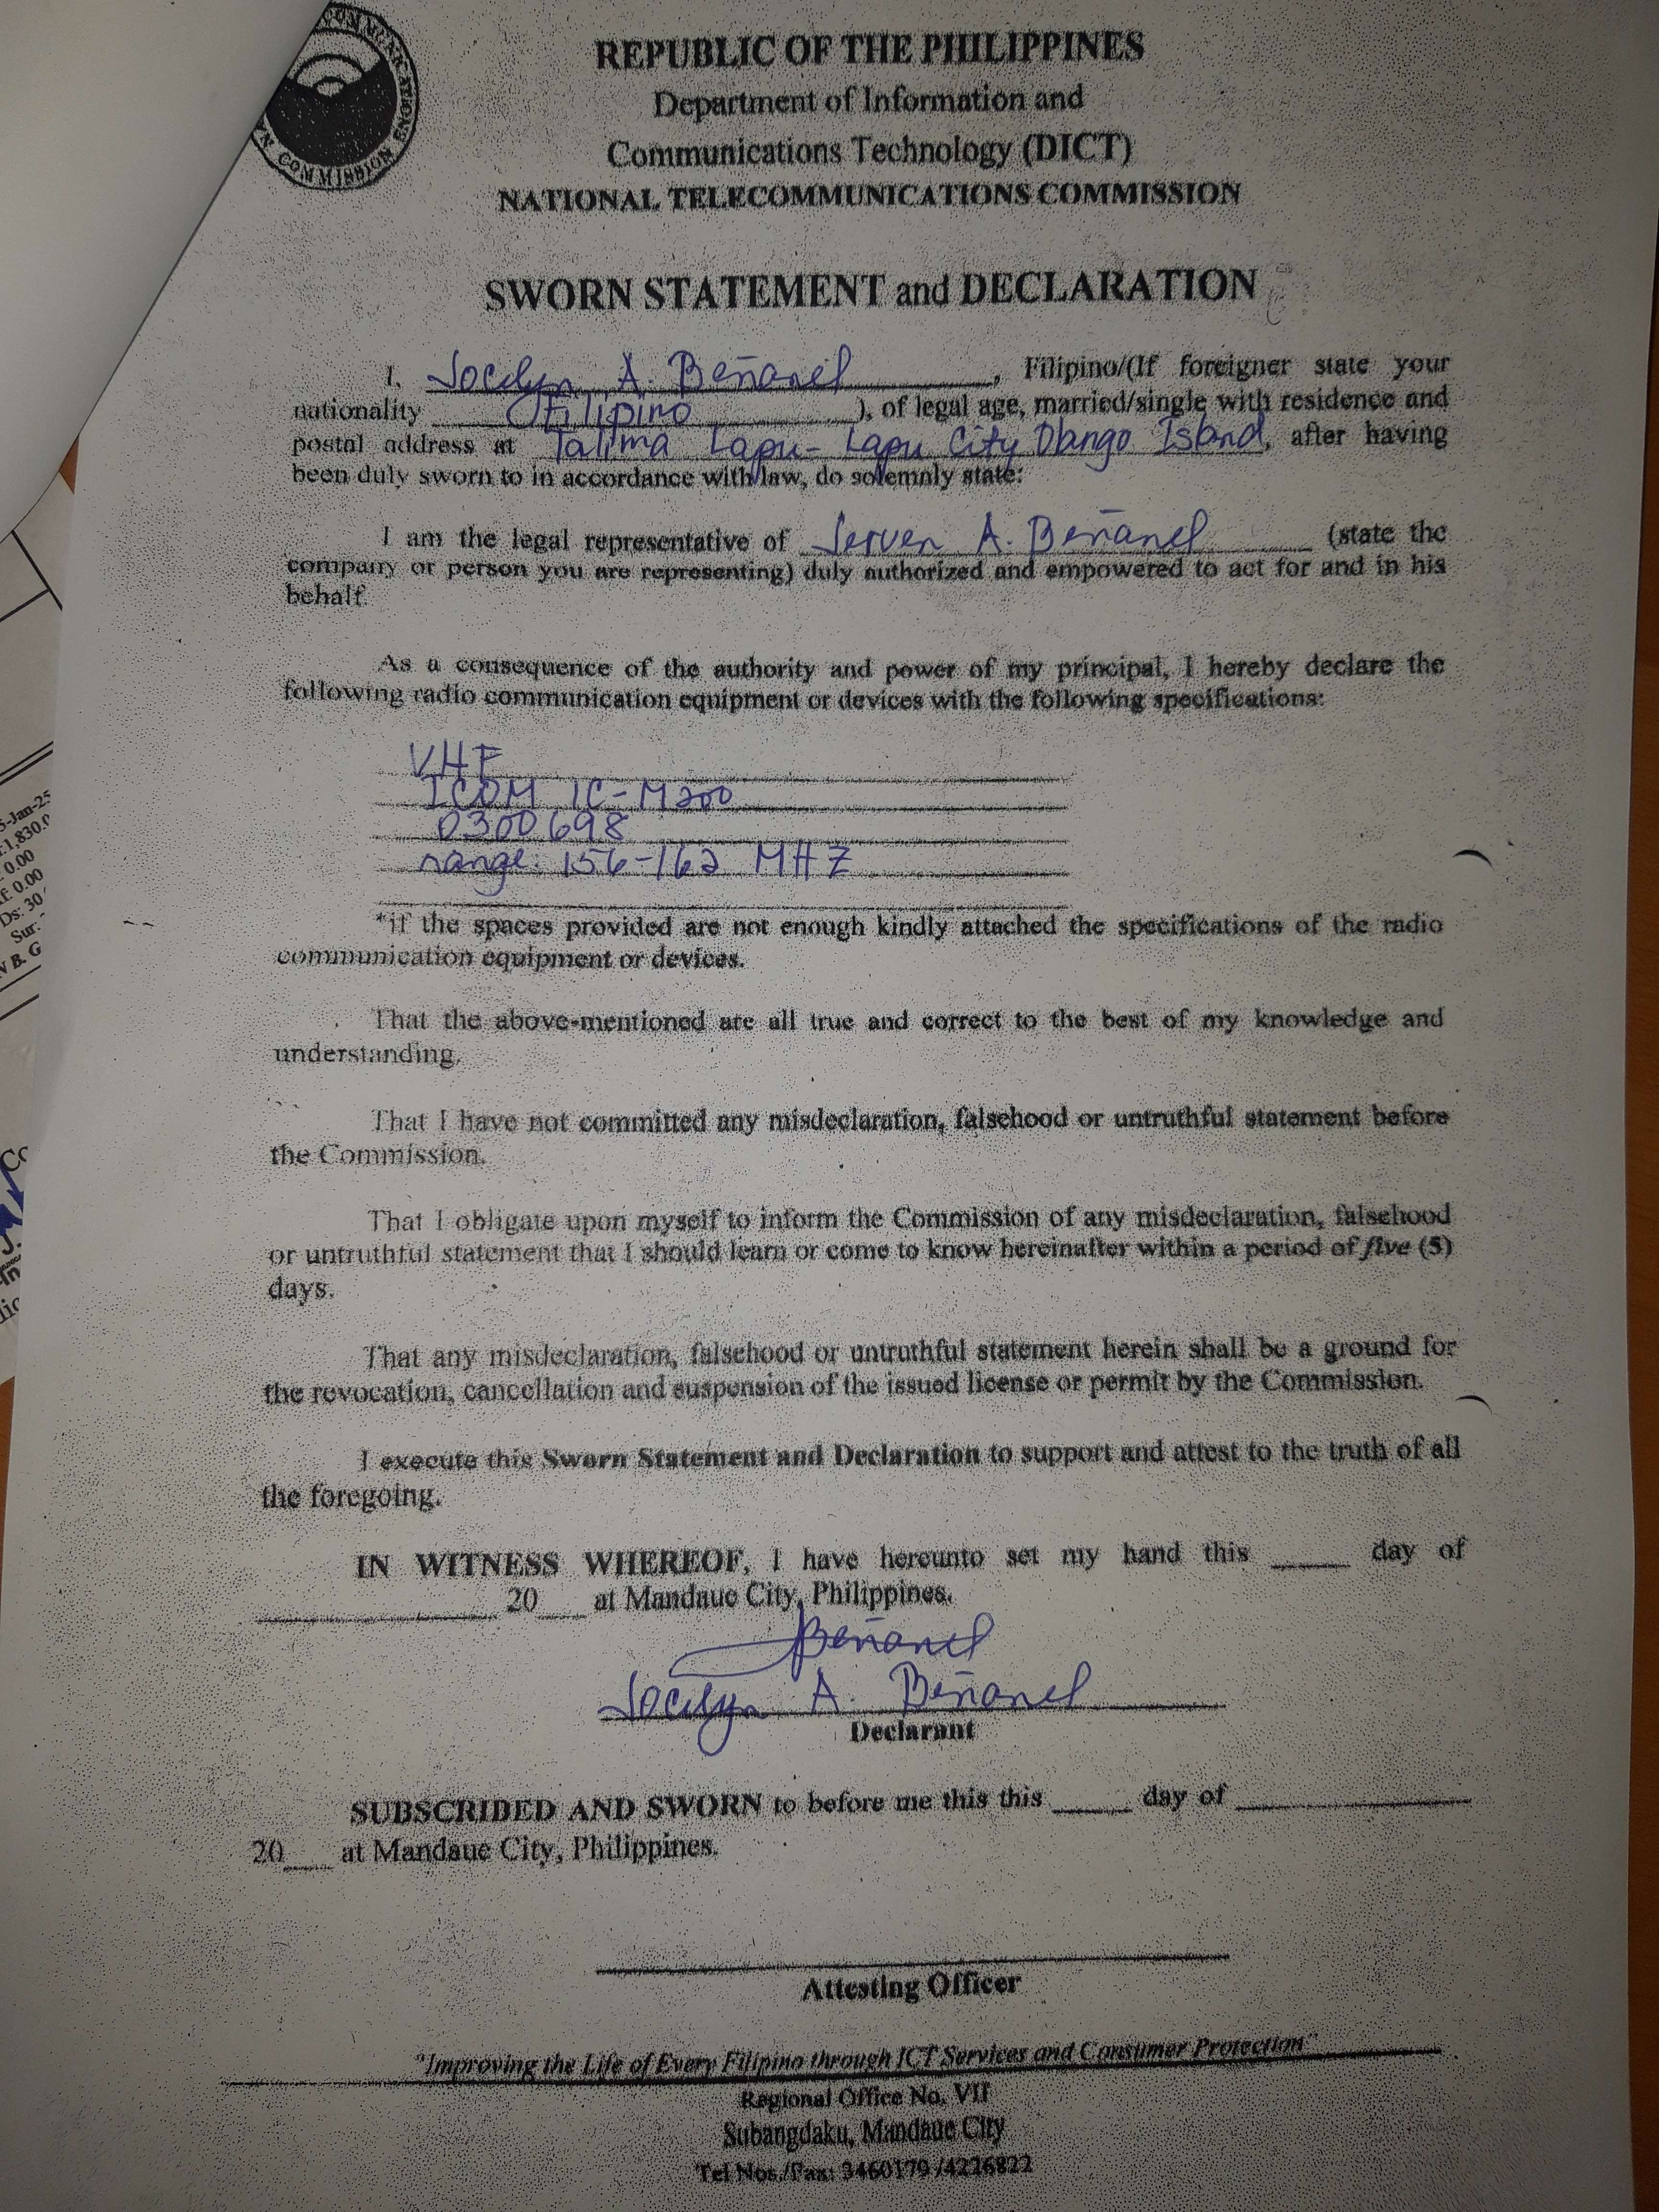 COMMISSION
REPUBLIC OF THE PHILIPPINES
Department of Information and
Communications Technology (DICT)
NATIONAL TELECOMMUNICATIONS COMMISSION
SWORN STATEMENT and DECLARATION
I, Jocelyn A. Beñanel, Filipino/(If foreigner state your
nationality Filipino), of legal age, married/single with residence and
postal address at Talima Lapu-Lapu City Olango Island, after having
been duly sworn to in accordance with law, do solemnly state:
I am the legal representative of Jerven A. Beñanel (state the
company or person you are representing) duly authorized and empowered to act for and in his
behalf.
As a consequence of the authority and power of my principal, I hereby declare the
following radio communication equipment or devices with the following specifications:
VHF
ICOM IC-M200
0300698
range: 156-162 MHZ
*if the spaces provided are not enough kindly attached the specifications of the radio
communication equipment or devices.
That the above-mentioned are all true and correct to the best of my knowledge and
understanding.
That I have not committed any misdeclaration, falsehood or untruthful statement before
the Commission.
That I obligate upon myself to inform the Commission of any misdeclaration, falsehood
or untruthful statement that I should learn or come to know hereinafter within a period of five (5)
days.
That any misdeclaration, falsehood or untruthful statement herein shall be a ground for
the revocation, cancellation and suspension of the issued license or permit by the Commission.
I execute this Sworn Statement and Declaration to support and attest to the truth of all
the foregoing.
IN WITNESS WHEREOF, I have hereunto set my hand this ____ day of
____ 20__ at Mandaue City, Philippines.
Beñanel
Jocelyn A. Beñanel
Declarant
SUBSCRIDED AND SWORN to before me this this ____ day of ____
20__ at Mandaue City, Philippines.
Attesting Officer
"Improving the Life of Every Filipino through ICT Services and Consumer Protection"
Regional Office No. VII
Subangdaku, Mandaue City
Tel Nos./Fax: 3460179 /4226822
5-Jan-25
1,830.0
0.00
0.00
Ds: 30
Sur:
B. G